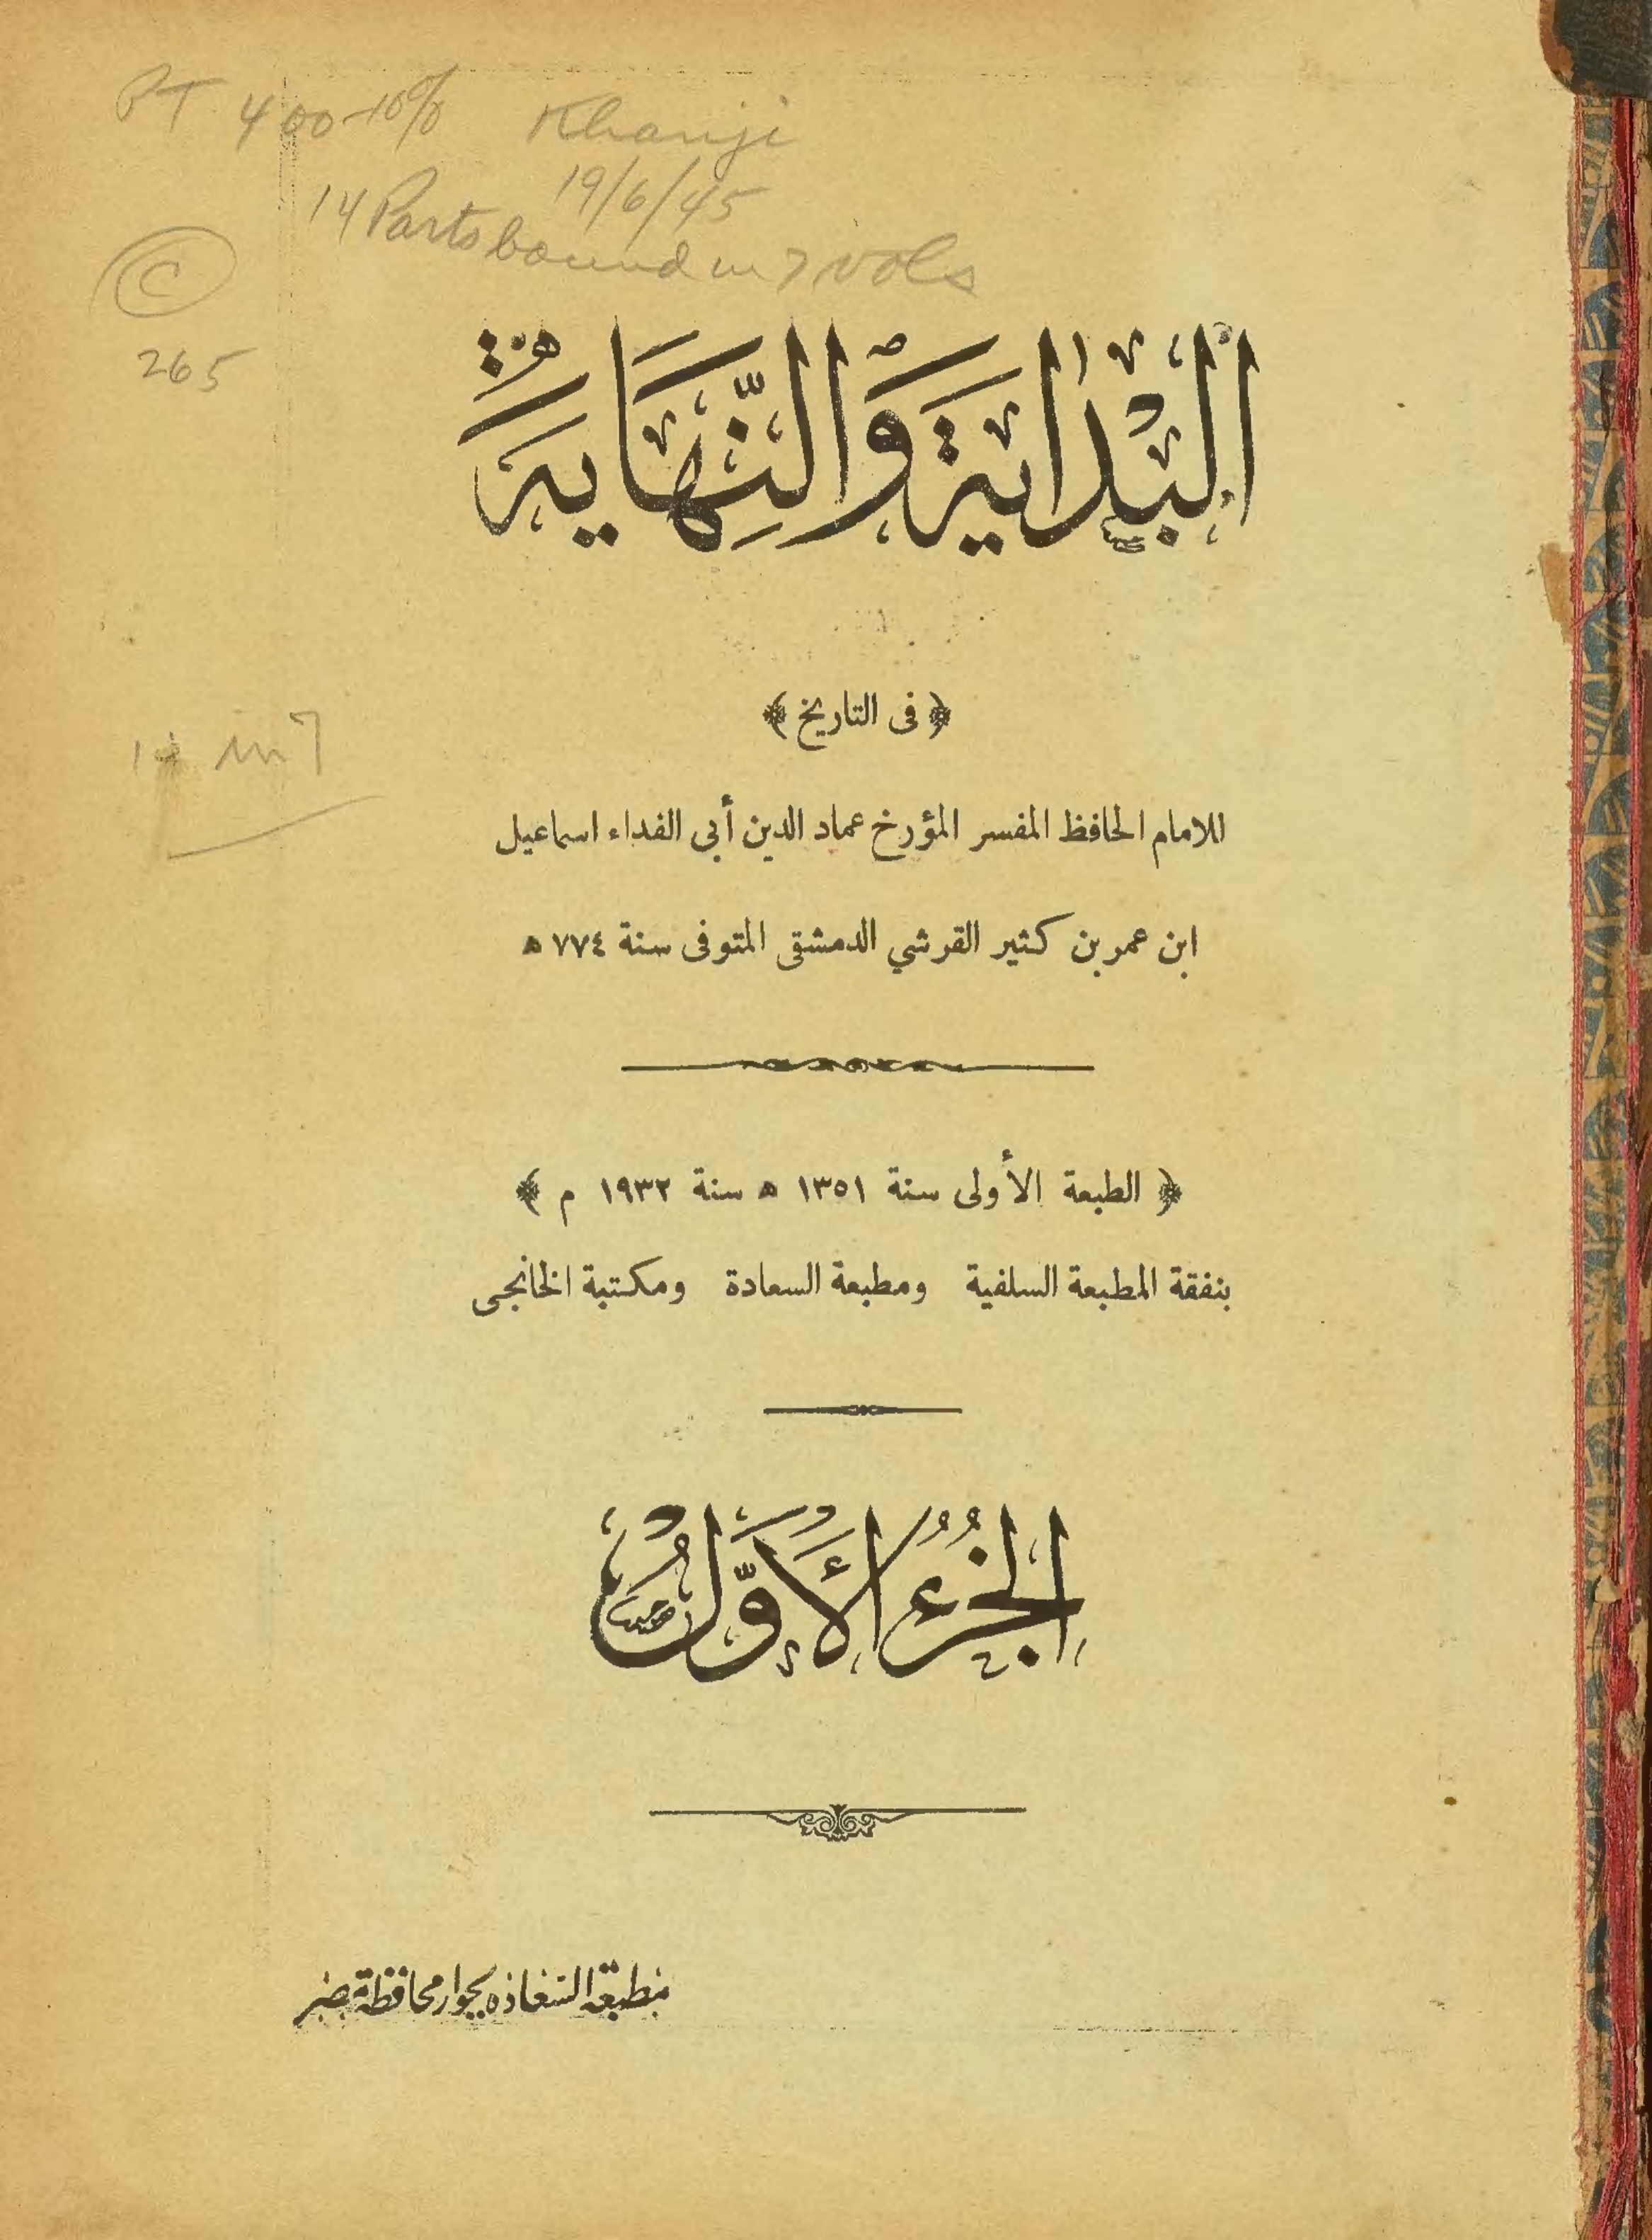 PT 400-10% Khanji
19/6/45
14 Parts bound in 7 vols
C
265
البداية والنهاية
﴿ فى التاريخ ﴾
14 in 7
للامام الحافظ المفسر المؤرخ عماد الدين أبي الفداء اسماعيل
ابن عمر بن كثير القرشي الدمشقى المتوفى سنة ٧٧٤ ه
﴿ الطبعة الأولى سنة ١٣٥١ ه سنة ١٩٣٢ م ﴾
بنفقة المطبعة السلفية ومطبعة السعادة ومكتبة الخانجى
الجُزءُ الأوَّل
مطبعة السعاده بجوار محافظة مصر